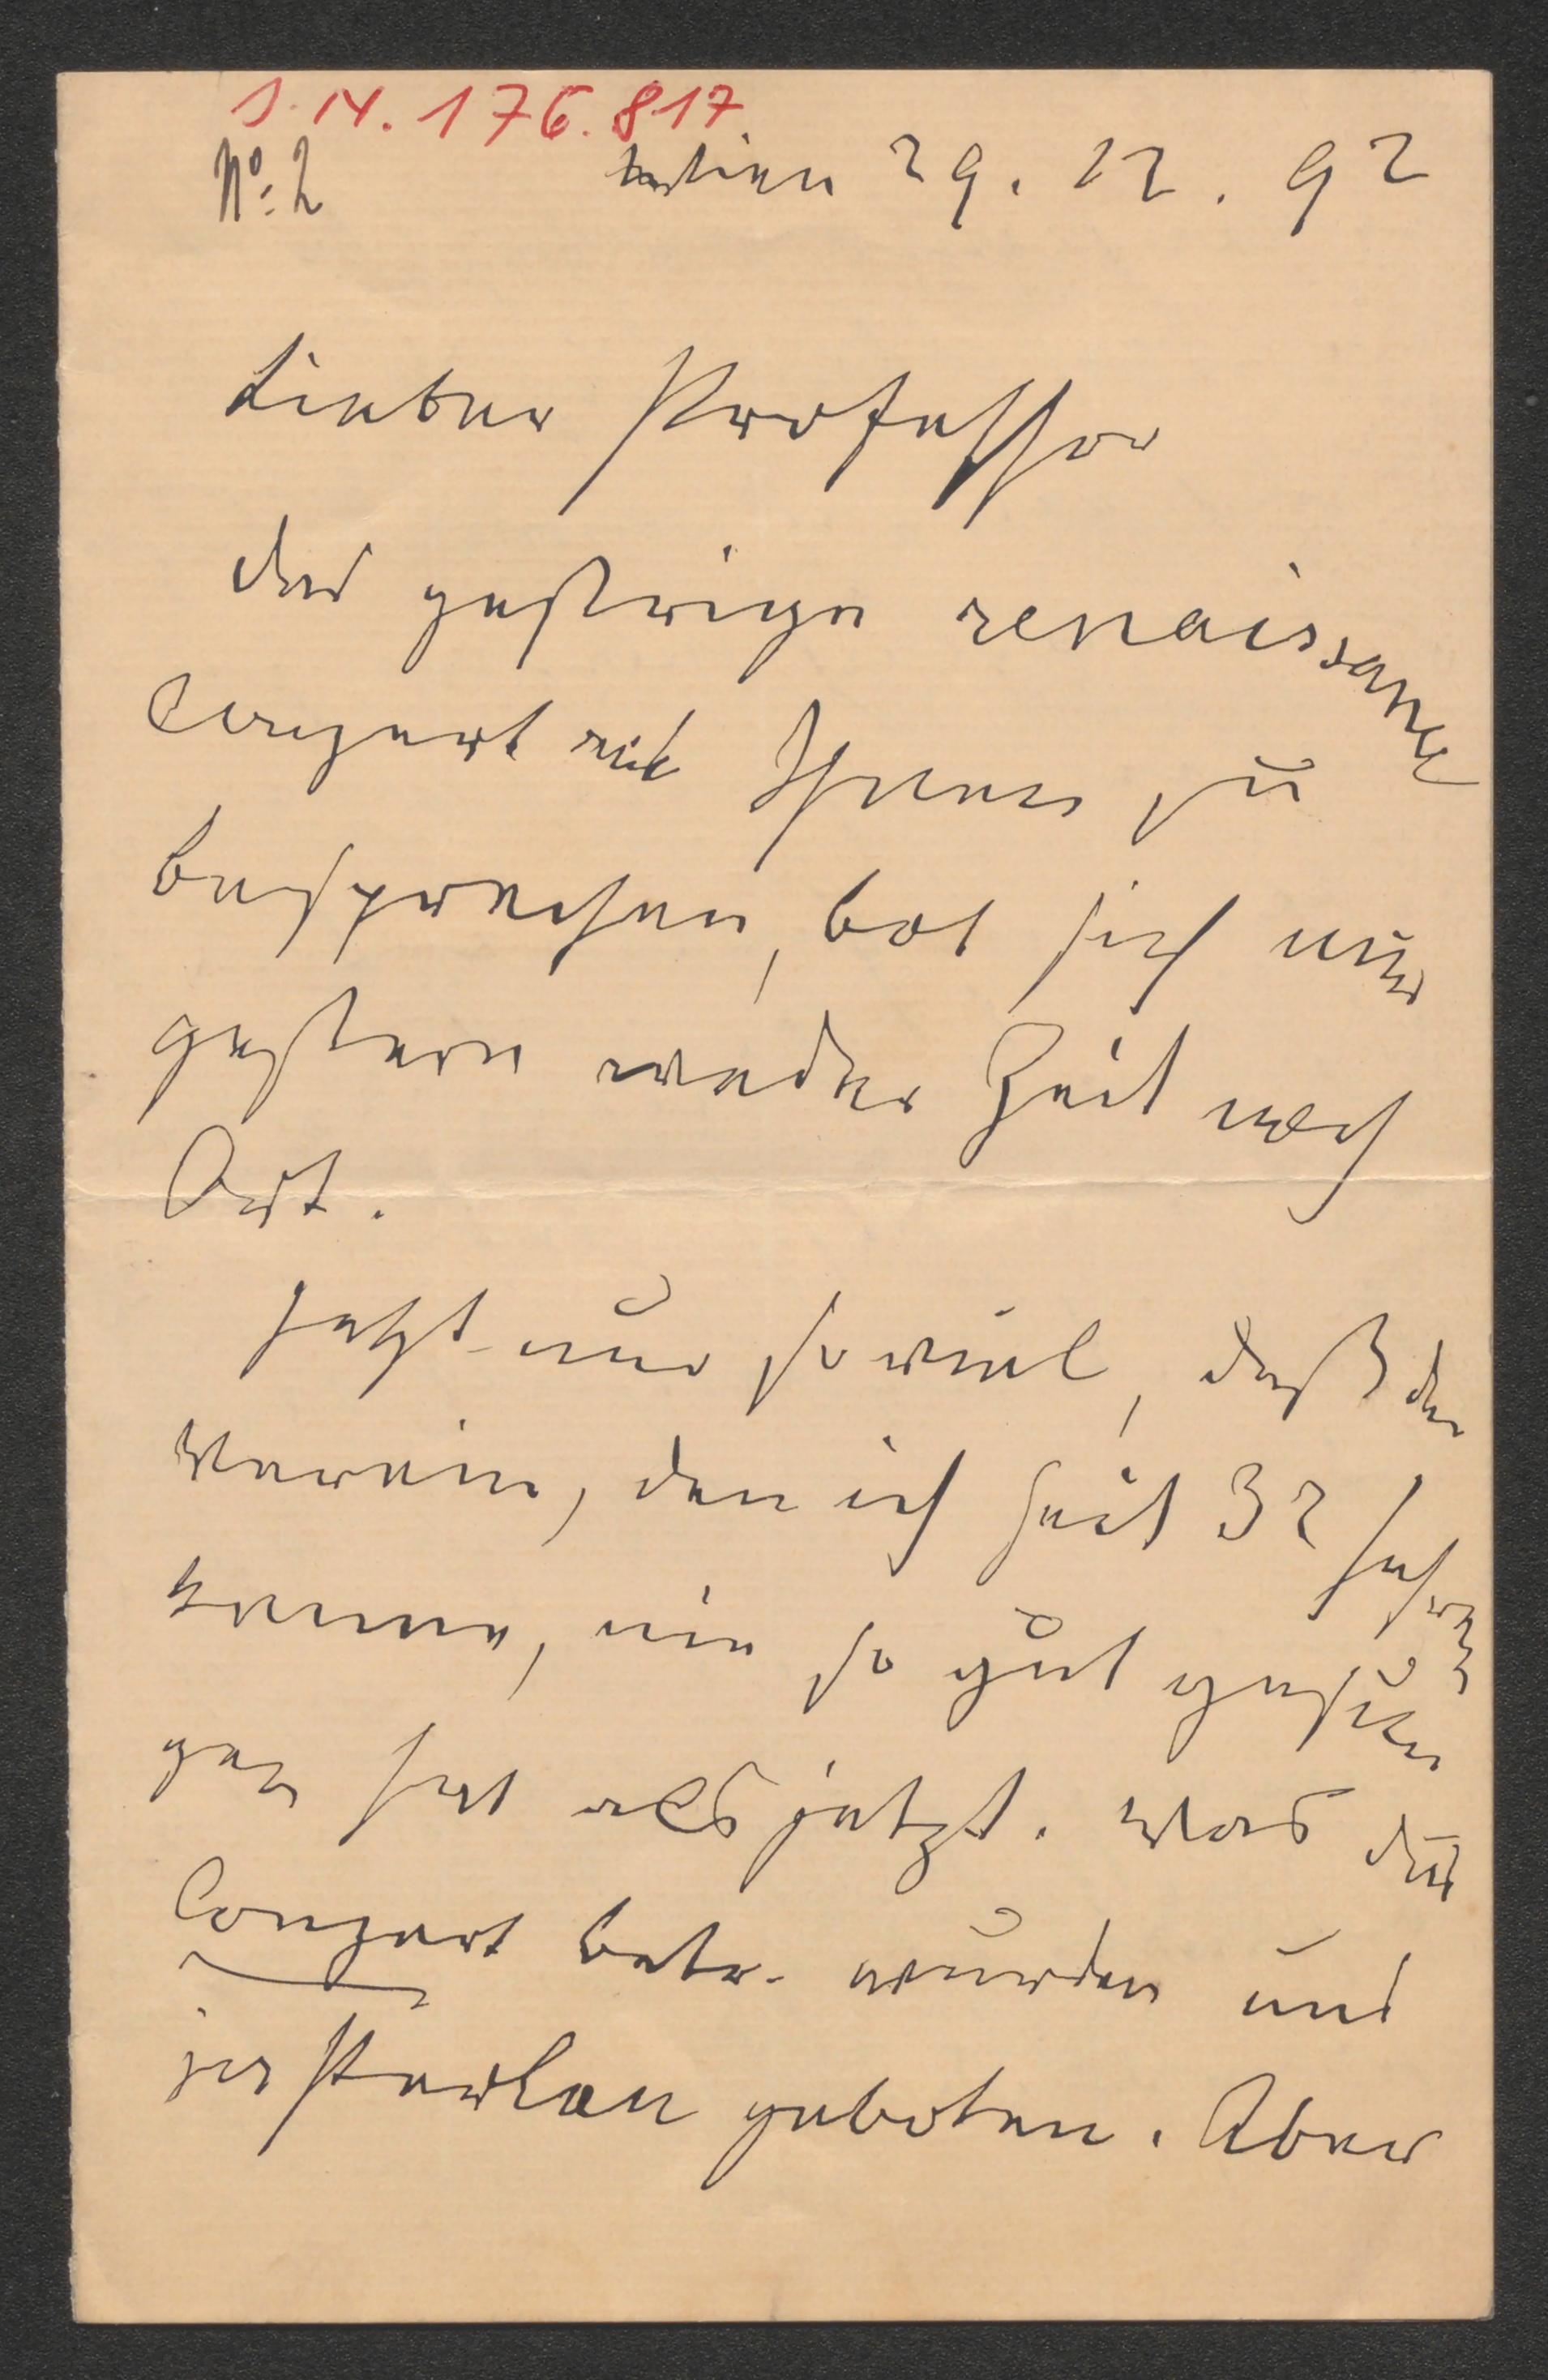 I. N. 176.817
No. 2 Wien 29. 12. 92
Lieber Professor
das gestrige renaissance
Conzert mit Ihnen zu
besprechen, bot sich mir
gestern weder Zeit noch
Ort.
Jetzt nur so viel, daß der
Verein, den ich seit 32 Jahren
kenne, nie so gut gesun
gen hat als jetzt. Was das
Conzert betr. wurden uns
Perlen geboten. Aber